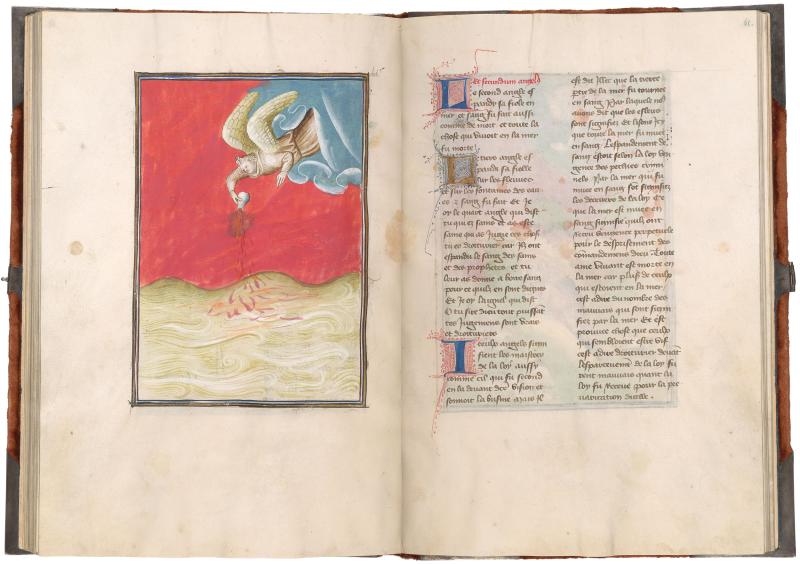 Le secundum angele
e second angle es
pandy sa fiole en
mer et sang fu fait aussi
comme de mort et toute la
chose qui vivoit en la mer
fu morte
L tiers angle es
panda sa fiolle
sur les fleuves
et sur les fontaines des eau
es z sang fu fait Et je
oy le quart angle qui dist
tu qui es sains et as este
sains qui as jugie ces choses
tu es droiturier car Ilz ont
espandu le sang des sains
et des prophetes et tu
leur as donne a boire sang
pour ce quilz en sont dignes
Et Je oy laignel qui dist
O tu sire dieu tout puissant
tes Jugemens sont vrais
et droituriers
I ceulx angels signi
fient les maistres
de la loy aussy
comme cil qui fu second
en la devant dicte vision et
sonnoit la busine mais Il
est dit Illec que la tierce
ptie de la mer fu tournee
en sang Par laquele nos
avons dit que les esleus
sont signifies et lisons Icy
que toute la mer fu muee
en sang Lespandement de
sang estoit selon la loy ven
gence des pechies crimi
nels Par la mer qui fu
muee en sang sot signifiez
les decevere de la loy Ce
que la mer est muee en
sang signifie quilz ont
receu vengence perpetuele
pour le desprisement des
comandemens dieu Toute
ame vivant est morte en
la mer car pluss de ceulx
qui estoient en la mer
cest adire du nombre des
mauvais qui sont signi
fiez par la mer Et est
prouvee chose que ceulx
qui sembloient estre vifs
cest adire droiturier devant
lespartement de la loy fu
rent mauvais quant la
loy fu receue pour la pre
varication dicelle .